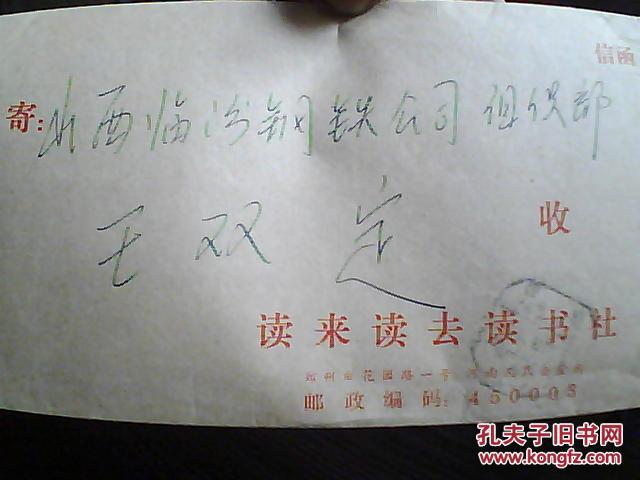 信函
寄：山西临汾钢铁公司俱乐部
王双定
收
读来读去读书社
郑州市花园路一号
邮政编码：450003
孔夫子旧书网
www.kongfz.com